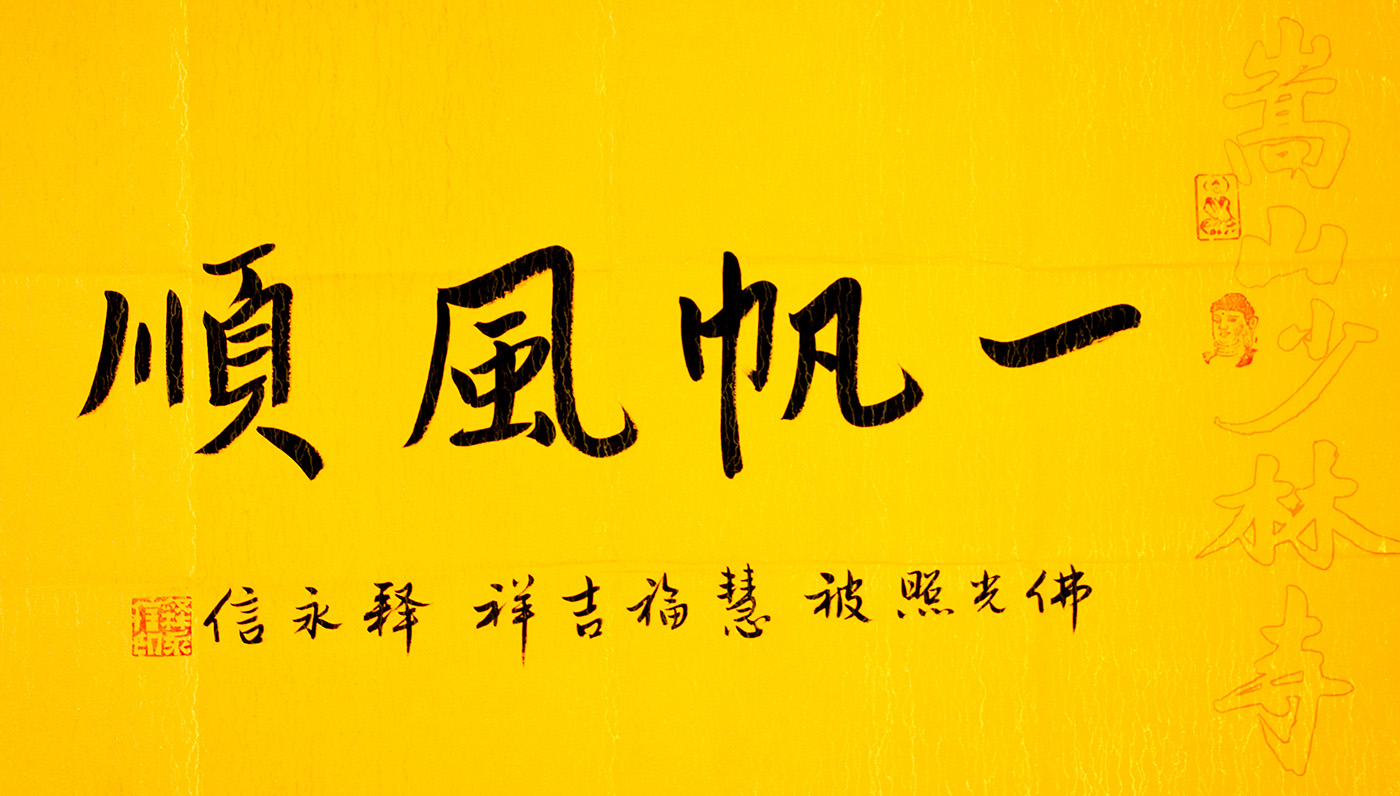 嵩山少林寺
一帆風順
佛光照被 慧福吉祥 释永信